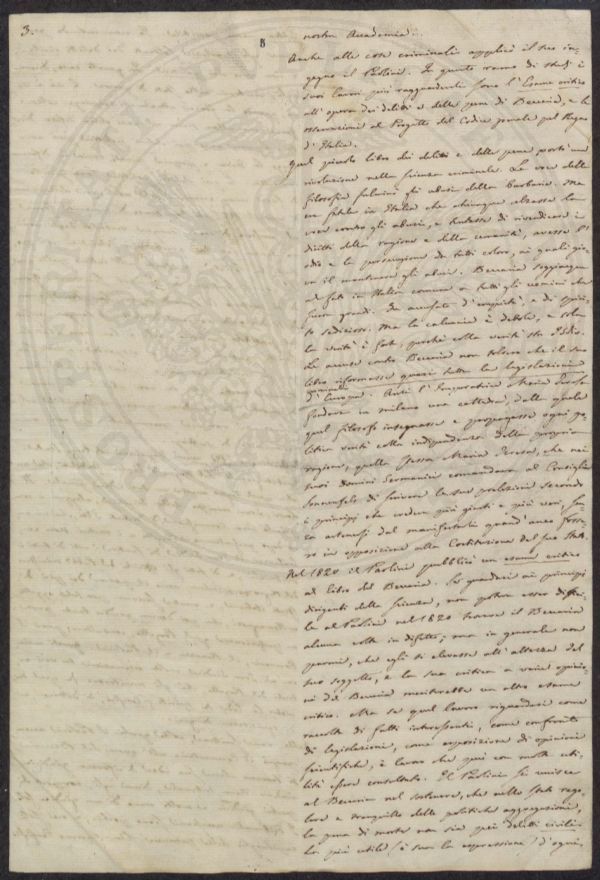 3.
8
nostra Accademia.
Anche alle cose criminali applicò il suo in-
gegno il Paolini. In questo ramo di studj i
suoi lavori più ragguardevoli sono l'Esame critico
all'opera dei delitti e delle pene di Beccaria, e le
osservazioni al Progetto del Codice penale pel Regno
d'Italia.
Quel piccolo libro dei delitti e delle pene portò una
rivoluzione nella scienza criminale. La voce della
filosofia fulminò gli abusi della barbarie. Ma
era fatale in Italia che chiunque alzasse la
voce contro gli abusi, e tentasse di rivendicare i
diritti della ragione e della umanità, avesse l'
odio e la persecuzione di tutti coloro, ai quali gio-
va il mantenere gli abusi. Beccaria soggiacque
al fato in Italia comune a tutti gli uomini che
furon grandi. Fu accusato d'empietà, e di spiri-
to sedizioso. Ma la calunnia è debole, e solo
la verità è forte, perché colla verità sta Iddio.
Le accuse contro Beccaria non tolsero che il suo
libro riformasse quasi tutta la legislazione
criminale
d'Europa. Anzi l'Imperatrice Maria Teresa
fondava in Milano una cattedra, dalla quale
quel filosofo insegnasse e propagasse ogni po-
litica verità colla indipendenza della propria
ragione, quella stessa Maria Teresa, che nei
suoi dominj Germanici comandava al Consigliere
Sonnenfels di scrivere le sue prelezioni secondo
i principj che credeva più giusti e più veri, sen-
za astenersi dal manifestarli quand'anco fosse-
ro in opposizione alla Costituzione del suo Stato.
Nel 1820 il Paolini pubblicò un esame critico
al libro del Beccaria. Se guardasi ai principj
dirigenti della scienza, non poteva esser diffici-
le al Paolini nel 1820 trovare il Beccaria
alcuna volta in difetto; ma in generale non
parmi, che egli si elevasse all'altezza del
suo soggetto, e la sua critica a varie opinio-
ni del Beccaria meriterebbe un altro esame
critico. Ma se quel lavoro riguardasi come
raccolta di fatti interessanti, come confronto
di legislazioni, come esposizione di opinioni
scientifiche, è lavoro che può con molta uti-
lità essere consultato. Il Paolini si unisce
al Beccaria nel sostenere, che nello stato rego-
lare e tranquillo delle politiche aggregazioni,
la pena di morte non sia pei delitti civili
la più utile (è sua la espressione) d'ogni